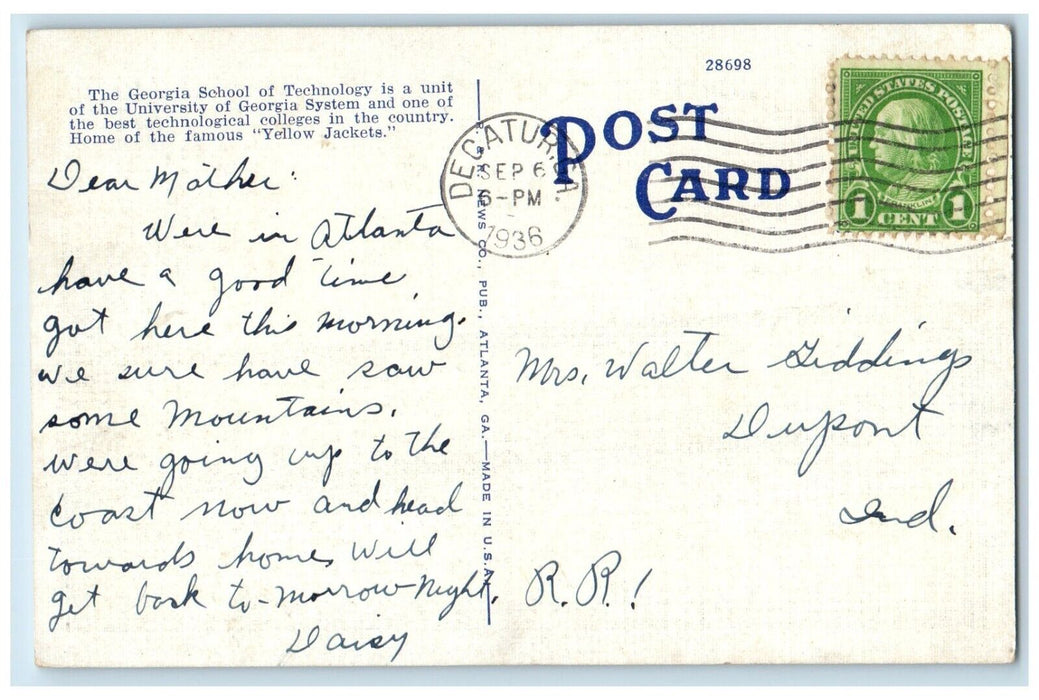 28698
The Georgia School of Technology is a unit
of the University of Georgia System and one of
the best technological colleges in the country.
Home of the famous "Yellow Jackets."
POST
CARD
DECATUR, GA.
SEP 6
6-PM
1936
UNITED STATES POSTAGE
FRANKLIN
1 CENT 1
Dear Mother:
Were in Atlanta
have a good time
got here this morning.
we sure have saw
some Mountains.
were going up to the
coast now and head
towards home, will
get back to-morrow Night.
Daisy
NEWS CO., PUB., ATLANTA, GA.—MADE IN U.S.A.
Mrs. Walter Giddings
Dupont
Ind.
R.R.1